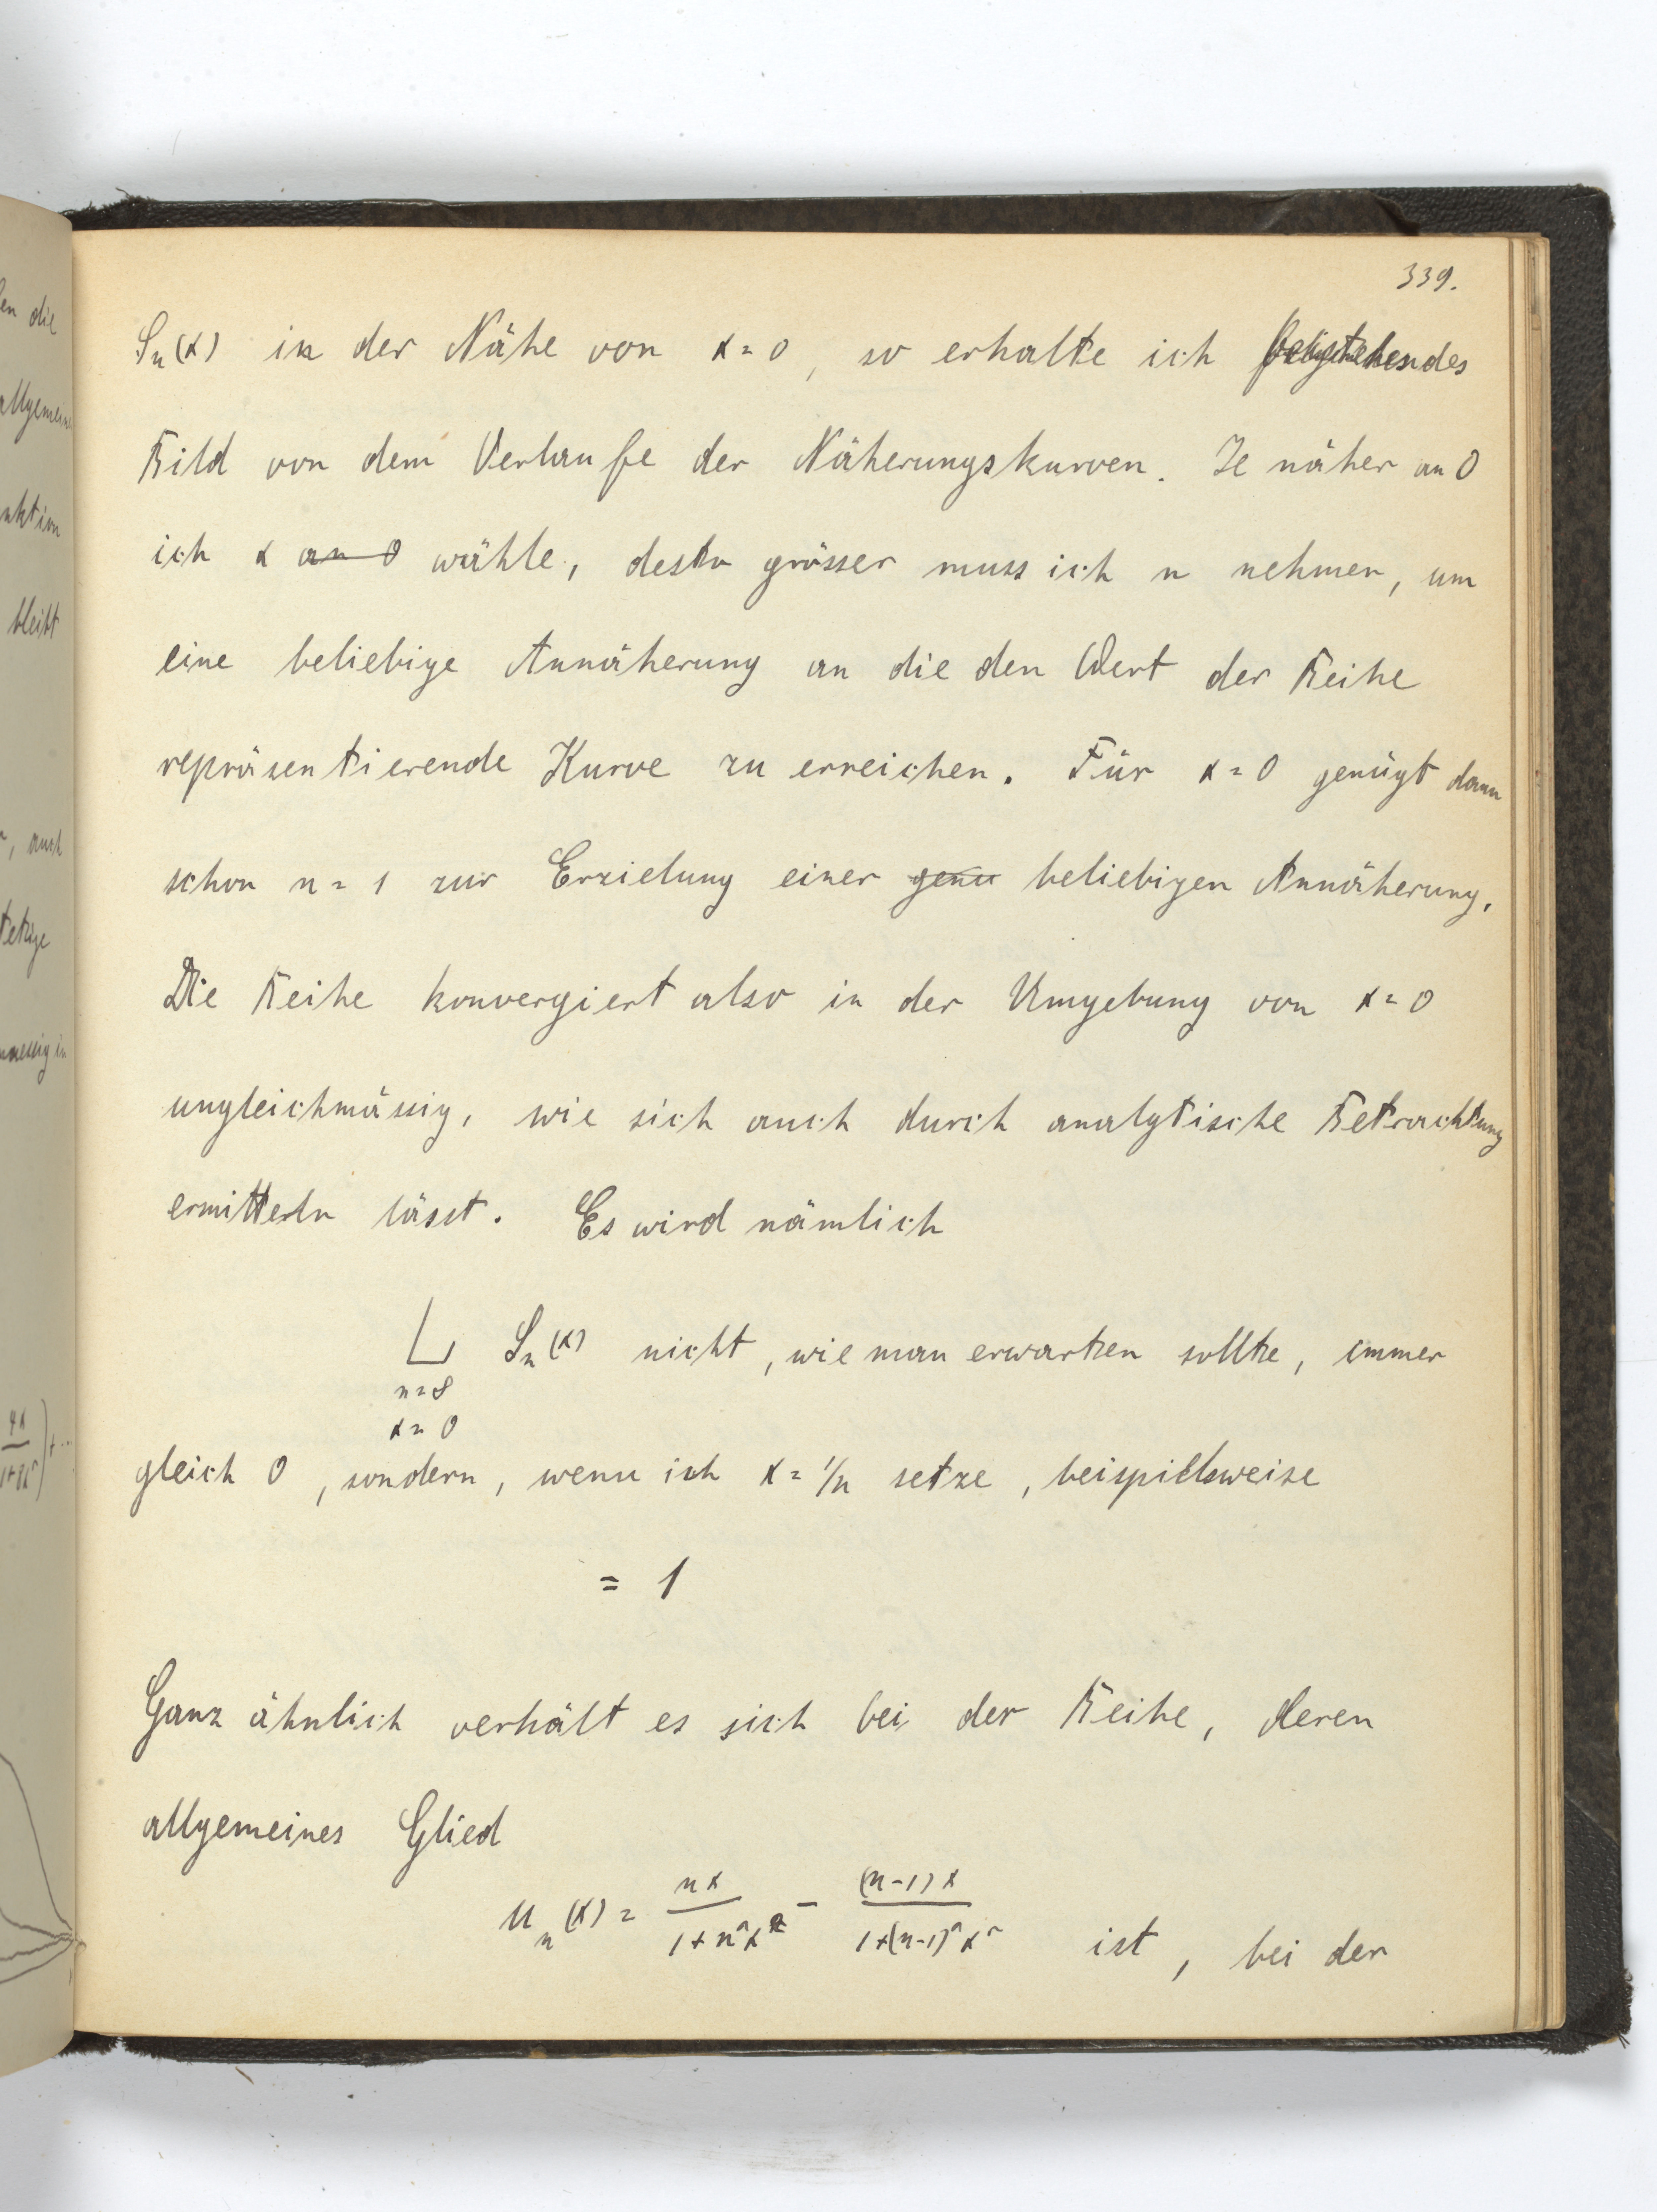 339.
Sₙ(x) in der Nähe von x=0, so erhalte ich beistehendes
Bild von dem Verlaufe der Näherungskurven. Je näher an 0
ich x an 0 wähle, desto grösser muss ich n nehmen, um
eine beliebige Annäherung an die den Wert der Reihe
repräsentierende Kurve zu erreichen. Für x=0 genügt dann
schon n=1 zur Erzielung einer genu beliebigen Annäherung.
Die Reihe konvergiert also in der Umgebung von x=0
ungleichmässig, wie sich auch durch analytische Betrachtung
ermitteln lässt. Es wird nämlich
L Sₙ(x) nicht, wie man erwarten sollte, immer
n=∞
x=0
gleich 0, sondern, wenn ich x=1/n setze, beispielsweise
= 1
Ganz ähnlich verhält es sich bei der Reihe, deren
allgemeines Glied
uₙ(x) = nx/(1+n²x²) − (n−1)x/(1+(n−1)²x²) ist, bei der